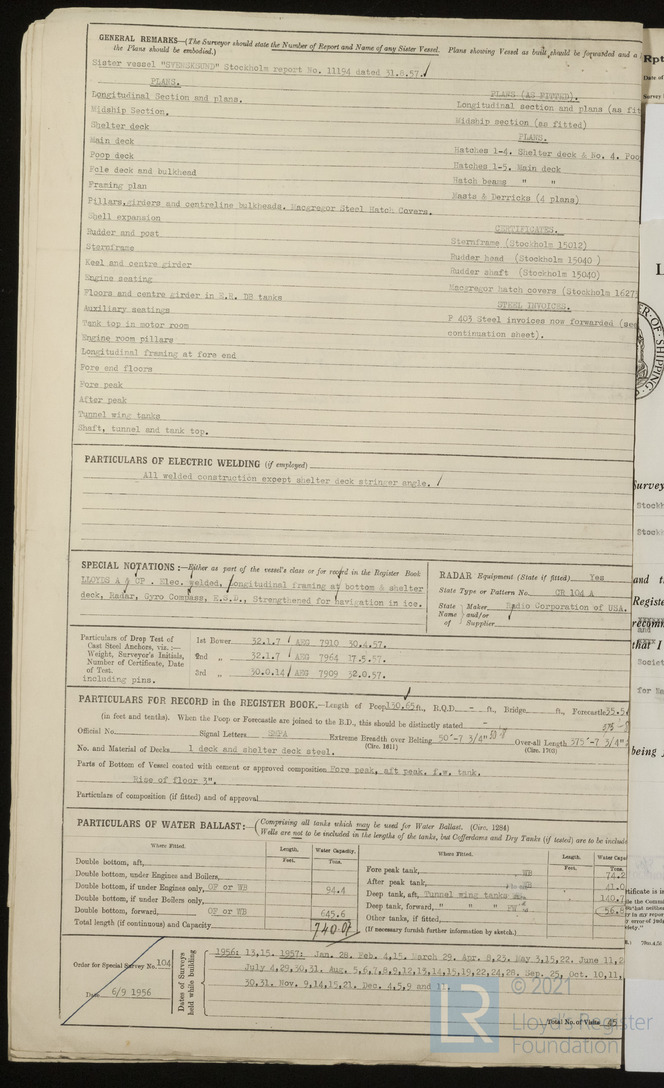 GENERAL REMARKS—(The Surveyor should state the Number of Report and Name of any Sister Vessel. Plans showing Vessel as built should be forwarded and a
the Plans should be embodied.)
Sister vessel "SVENSKSUND" Stockholm report No. 11194 dated 31.8.57.
PLANS.
Longitudinal Section and plans.
Midship Section.
Shelter deck
Main deck
Poop deck
Fcle deck and bulkhead
Framing plan
Pillars,girders and centreline bulkheads. Macgregor Steel Hatch Covers.
Shell expansion
Rudder and post
Sternframe
Keel and centre girder
Engine seating
Floors and centre girder in E.R. DB tanks
Auxiliary seatings
Tank top in motor room
Engine room pillars
Longitudinal framing at fore end
Fore end floors
Fore peak
After peak
Tunnel wing tanks
Shaft, tunnel and tank top.
PLANS (AS FITTED).
Longitudinal section and plans (as fit
Midship section (as fitted)
PLANS.
Hatches 1-4. Shelter deck & No. 4. Poo
Hatches 1-5. Main deck
Hatch beams " "
Masts & Derricks (4 plans)
CERTIFICATES.
Sternframe (Stockholm 15012)
Rudder head (Stockholm 15040 )
Rudder shaft (Stockholm 15040)
Macgregor hatch covers (Stockholm 1627
STEEL INVOICES.
P 403 Steel invoices now forwarded (see
continuation sheet).
PARTICULARS OF ELECTRIC WELDING (if employed)
All welded construction except shelter deck stringer angle.
SPECIAL NOTATIONS :—Either as part of the vessel's class or for record in the Register Book
LLOYDS A & CP . Elec. welded, Longitudinal framing at bottom & shelter
deck, Radar, Gyro Compass, E.S.D., Strengthened for navigation in ice.
RADAR Equipment (State if fitted) Yes
State Type or Pattern No. CR 104 A
State Name of Maker and/or Supplier Radio Corporation of USA.
Particulars of Drop Test of
Cast Steel Anchors, viz. :—
Weight, Surveyor's Initials,
Number of Certificate, Date
of Test.
including pins.
1st Bower 32.1.7 AEG 7910 30.4.57.
2nd „ 32.1.7 AEG 7964 17.5.57.
3rd „ 30.0.14 AEG 7909
PARTICULARS FOR RECORD in the REGISTER BOOK.—Length of Poop 150.65 ft., R.Q.D. - ft., Bridge ft., Forecastle 35.5
(in feet and tenths). When the Poop or Forecastle are joined to the B.D., this should be distinctly stated -
Official No. Signal Letters Extreme Breadth over Belting 50'-7 3/4" Over-all Length 375'-7 3/4"
(Circ. 1611) (Circ. 1703)
No. and Material of Decks 1 deck and shelter deck steel.
Parts of Bottom of Vessel coated with cement or approved composition Fore peak, aft peak. f.w. tank.
Rise of floor 3".
Particulars of composition (if fitted) and of approval
PARTICULARS OF WATER BALLAST:— Comprising all tanks which may be used for Water Ballast. (Circ. 1284)
Wells are not to be included in the lengths of the tanks, but Cofferdams and Dry Tanks (if tested) are to be includ
Where Fitted. Length. Feet. Water Capacity. Tons.
Double bottom, aft,
Double bottom, under Engines and Boilers,
Double bottom, if under Engines only, OF or WB 94.4
Double bottom, if under Boilers only,
Double bottom, forward, OF or WB 645.6
Total length (if continuous) and Capacity
Where Fitted. Length. Feet. Water Capa Tons.
Fore peak tank, WB 74.2
After peak tank, WB 41.0
Deep tank, aft, Tunnel wing tanks 140.
Deep tank, forward, " " FW 56.
Other tanks, if fitted,
(If necessary furnish further information by sketch.)
Order for Special Survey No. 104
Date 6/9 1956
Dates of Surveys
held while building
1956: 13,15. 1957: Jan. 28. Feb. 4,15. March 29. Apr. 8,23. May 3,15,22. June 11,2
July 4,29,30,31. Aug. 5,6,7,8,9,12,13,14,15,19,22,24,28. Sep. 25, Oct. 10,11,
30,31. Nov. 9,14,15,21. Dec. 4,5,9 and 11.
Total No. of Visits 45
© 2021
LR
Lloyd's Register
Foundation
Rpt
Date of
Survey
OF SHIPPING
Survey
Stock
Stock
and t
Registe
recom
that I
Societ
being